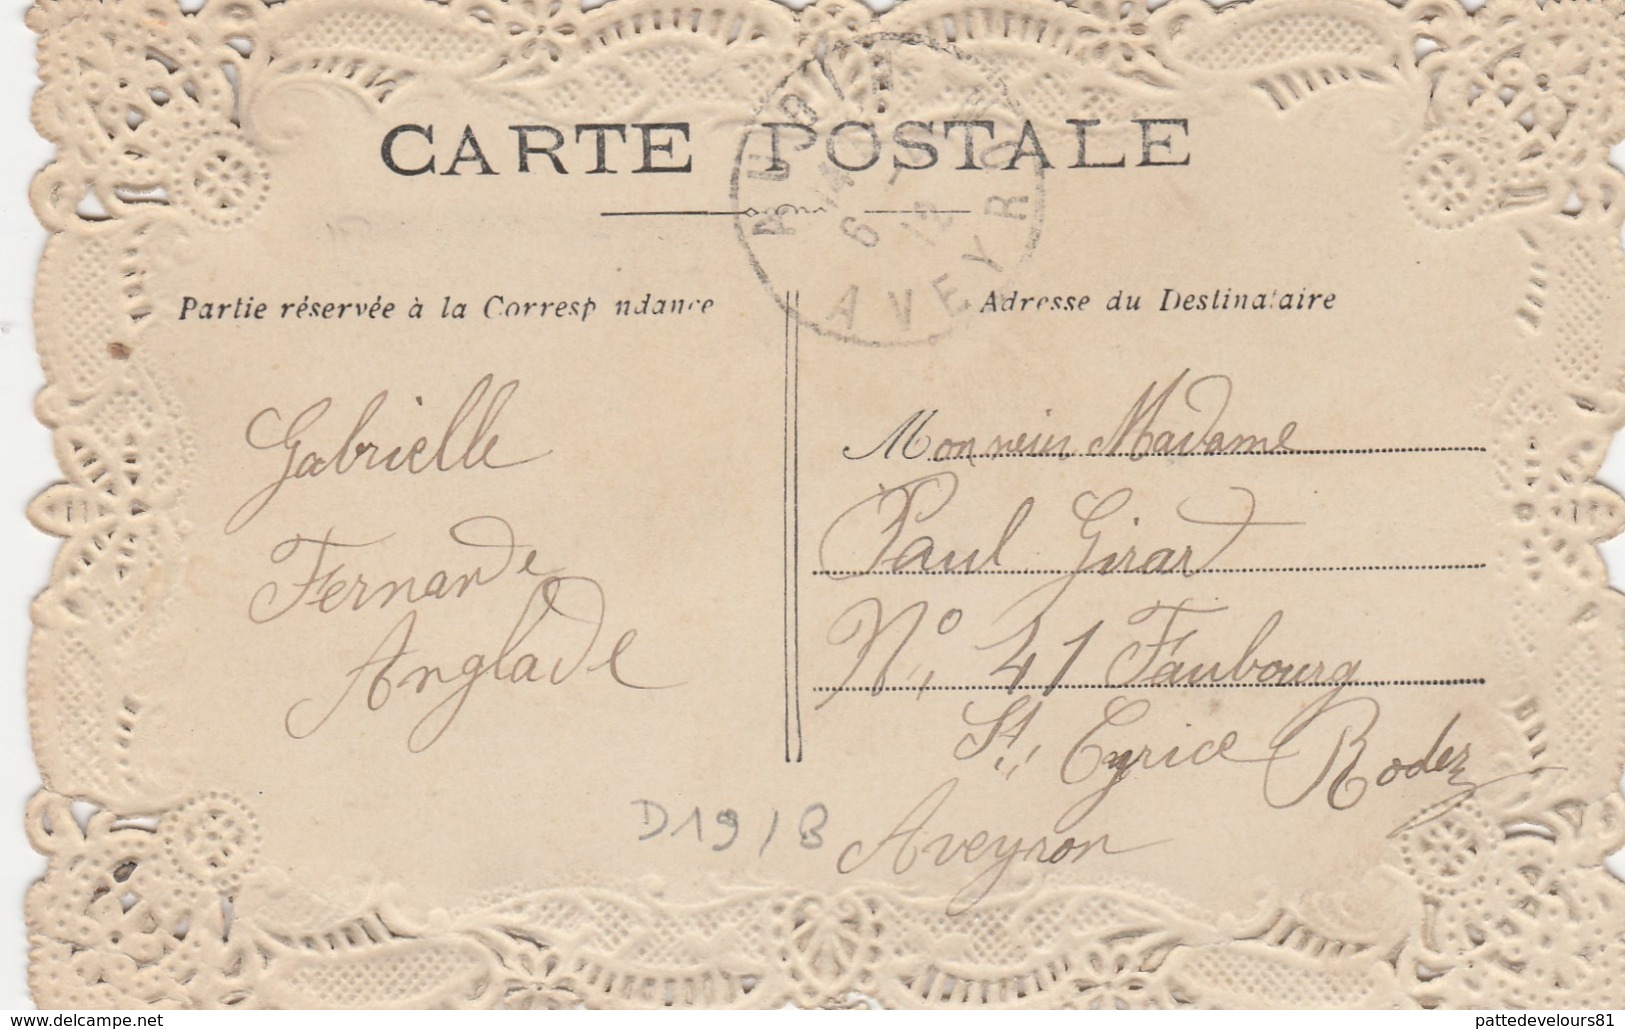 CARTE POSTALE
AVEYR
6
Partie réservée à la Corresp ndance
Adresse du Destinataire
Gabrielle
Fernande
Anglade
Monsieur Madame
Paul Girard
N°, 41 Faubourg
St, Cyrice Rodez
Aveyron
D19/B
www.delcampe.net
pattedevelours81